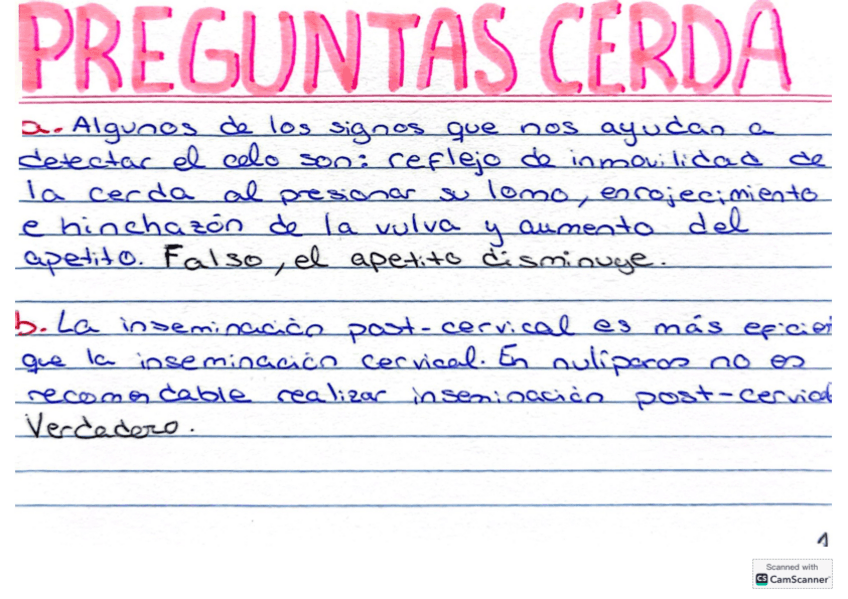 PREGUNTAS CERDA
a. Algunos de los signos que nos ayudan a
detectar el celo son: reflejo de inmovilidad de
la cerda al presionar su lomo, enrojecimiento
e hinchazón de la vulva y aumento del
apetito. Falso, el apetito disminuye.
b. La inseminación post-cervical es más eficien
que la inseminación cervical. En nulíparas no es
recomendable realizar inseminación post-cervical
Verdadero.
1
Scanned with
CS CamScanner